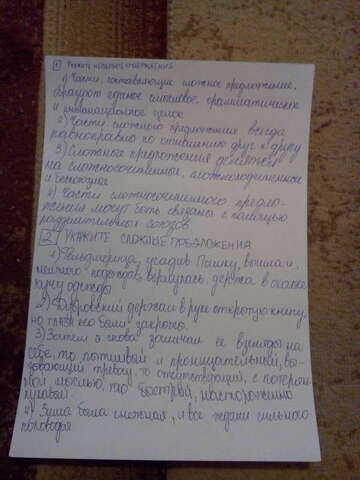 1 Укажите неверное утверждение
1) Части, составляющие сложное предложение,
образуют единое смысловое, грамматическое
и интонационное целое
2) Части сложного предложения всегда
равноправно по отношению друг к другу
3) Сложные предложения делятся
на сложносочиненные, сложноподчиненные
и бессоюзные
4) Части сложносочиненного предло-
жения могут быть связаны с помощью
разделительных союзов
2 УКАЖИТЕ СЛОЖНЫЕ ПРЕДЛОЖЕНИЯ
1) Фельдшерица, усадив Пашку, вышла и,
немного подождав вернулась, держа в охапке
кучу одежды
2) Дубровский держал в руке открытую книгу,
но глаза его были закрыты.
3) Затем я снова замечал ее взгляды на
себе, то пытливый и проницательный, вы-
зывающий тревогу, то отсутствующий, с потерян-
ной мыслью, то быстрый, настороженно
пугливый.
4) Зима была снежная, и все ждали сильного
половодья